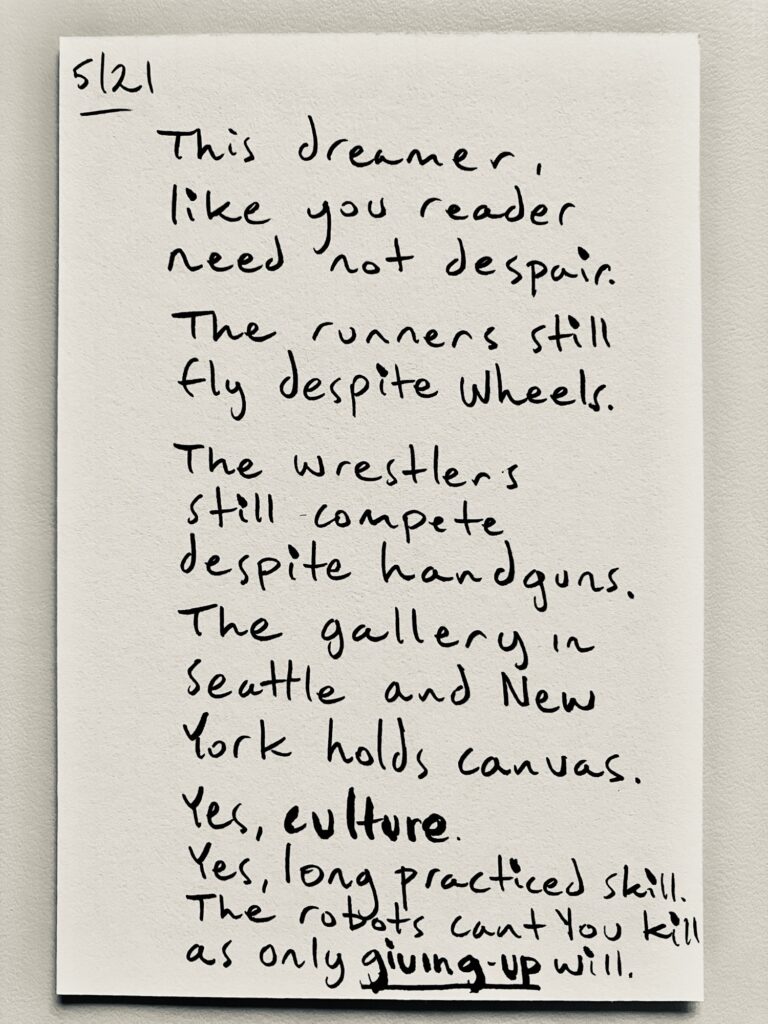 5/21
This dreamer,
like you reader
need not despair.
The runners still
fly despite wheels.
The wrestlers
still compete
despite handguns.
The gallery in
Seattle and New
York holds canvas.
Yes, culture.
Yes, long practiced skill.
The robots cant You kill
as only giving-up will.